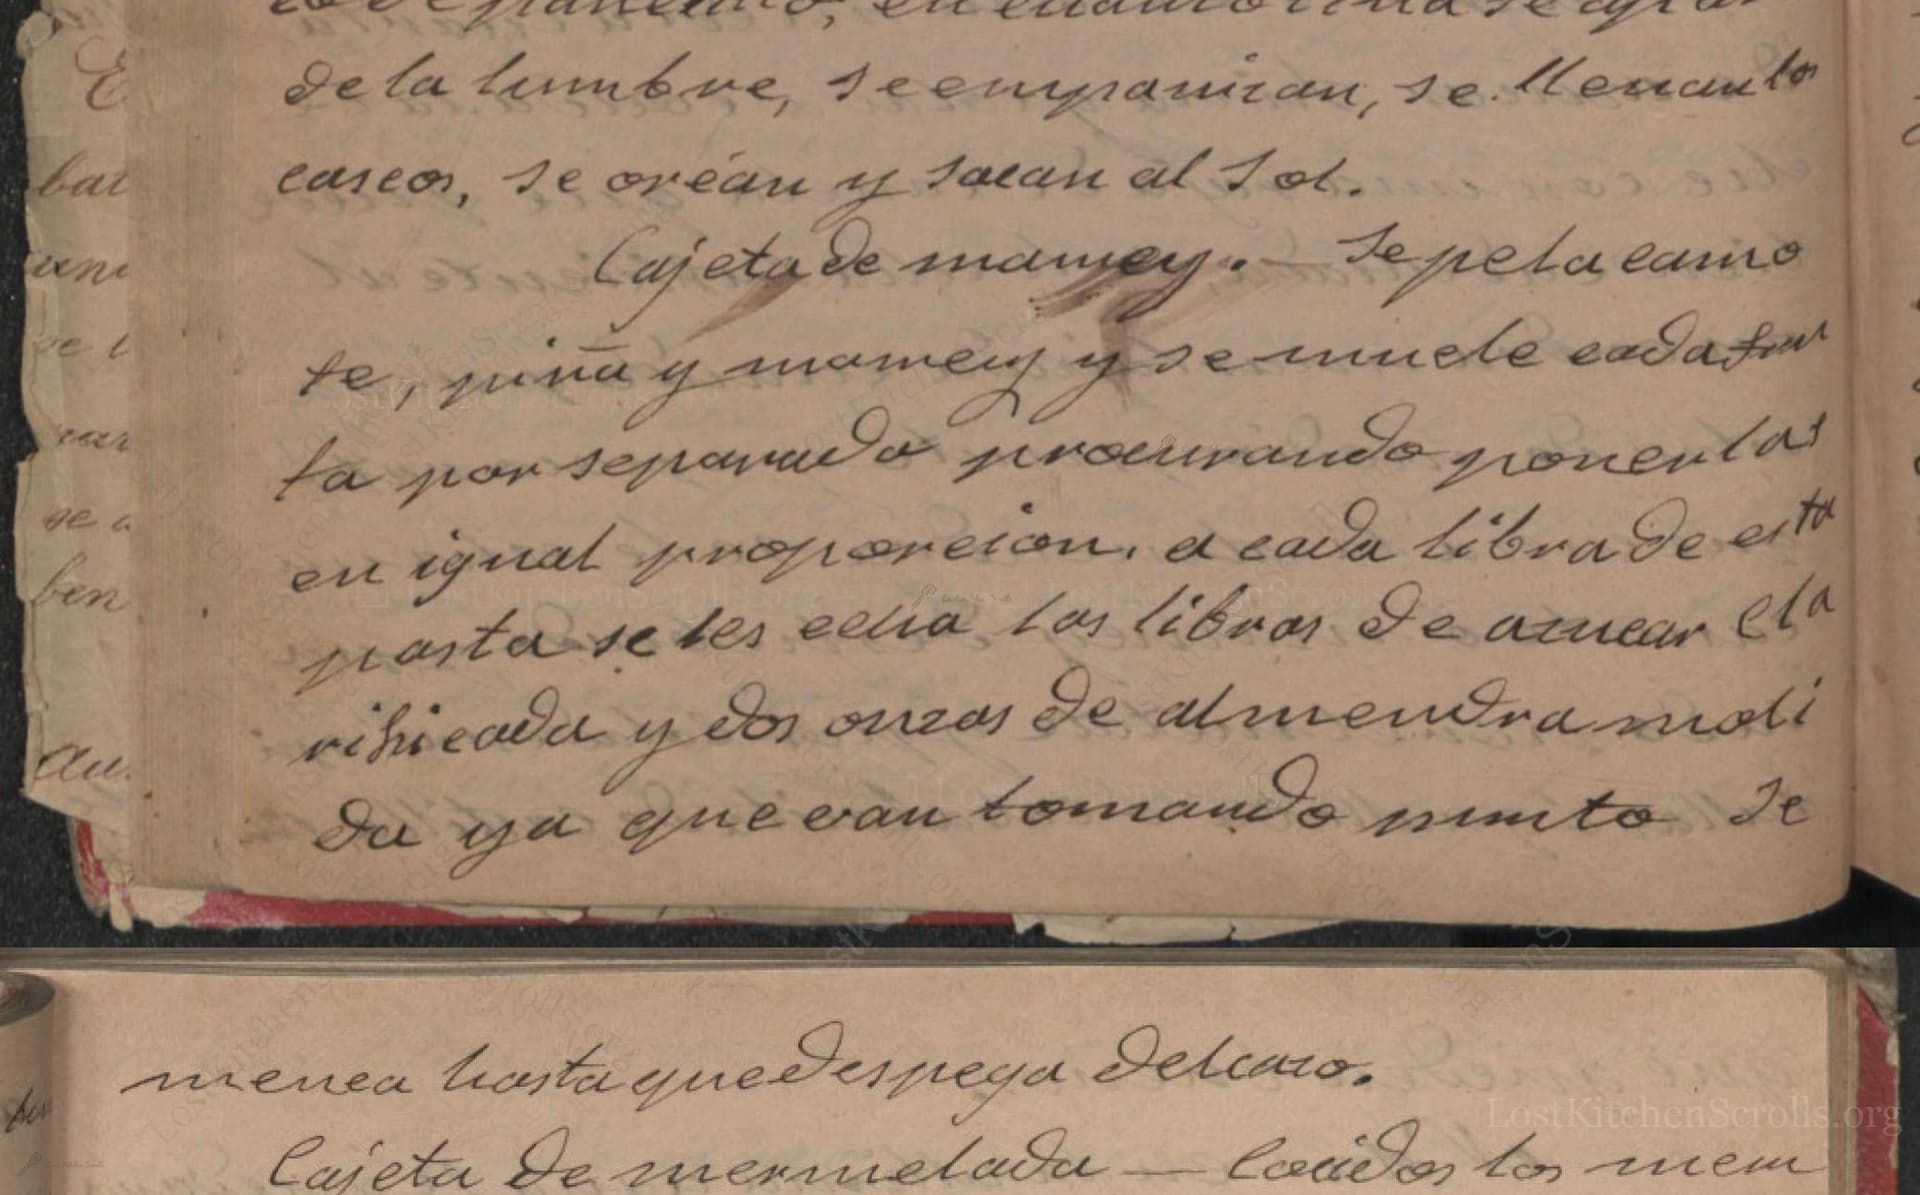 de la lumbre, se empanizan, se. llenan los
cascos, se oréan y sacan al sol.
Cajeta de mamey. — Se pela camo
te, piña y mamey y se muele cada fru
ta por separado procurando ponerlas
en igual proporcion. a cada libra de esta
pasta se les echa las libras de azucar cla
rificada y dos onzas de almendra moli
da ya que van tomando punto se
menea hasta que despega del caso.
Cajeta de mermelada — Cocidos los mem
LostKitchenScrolls.org